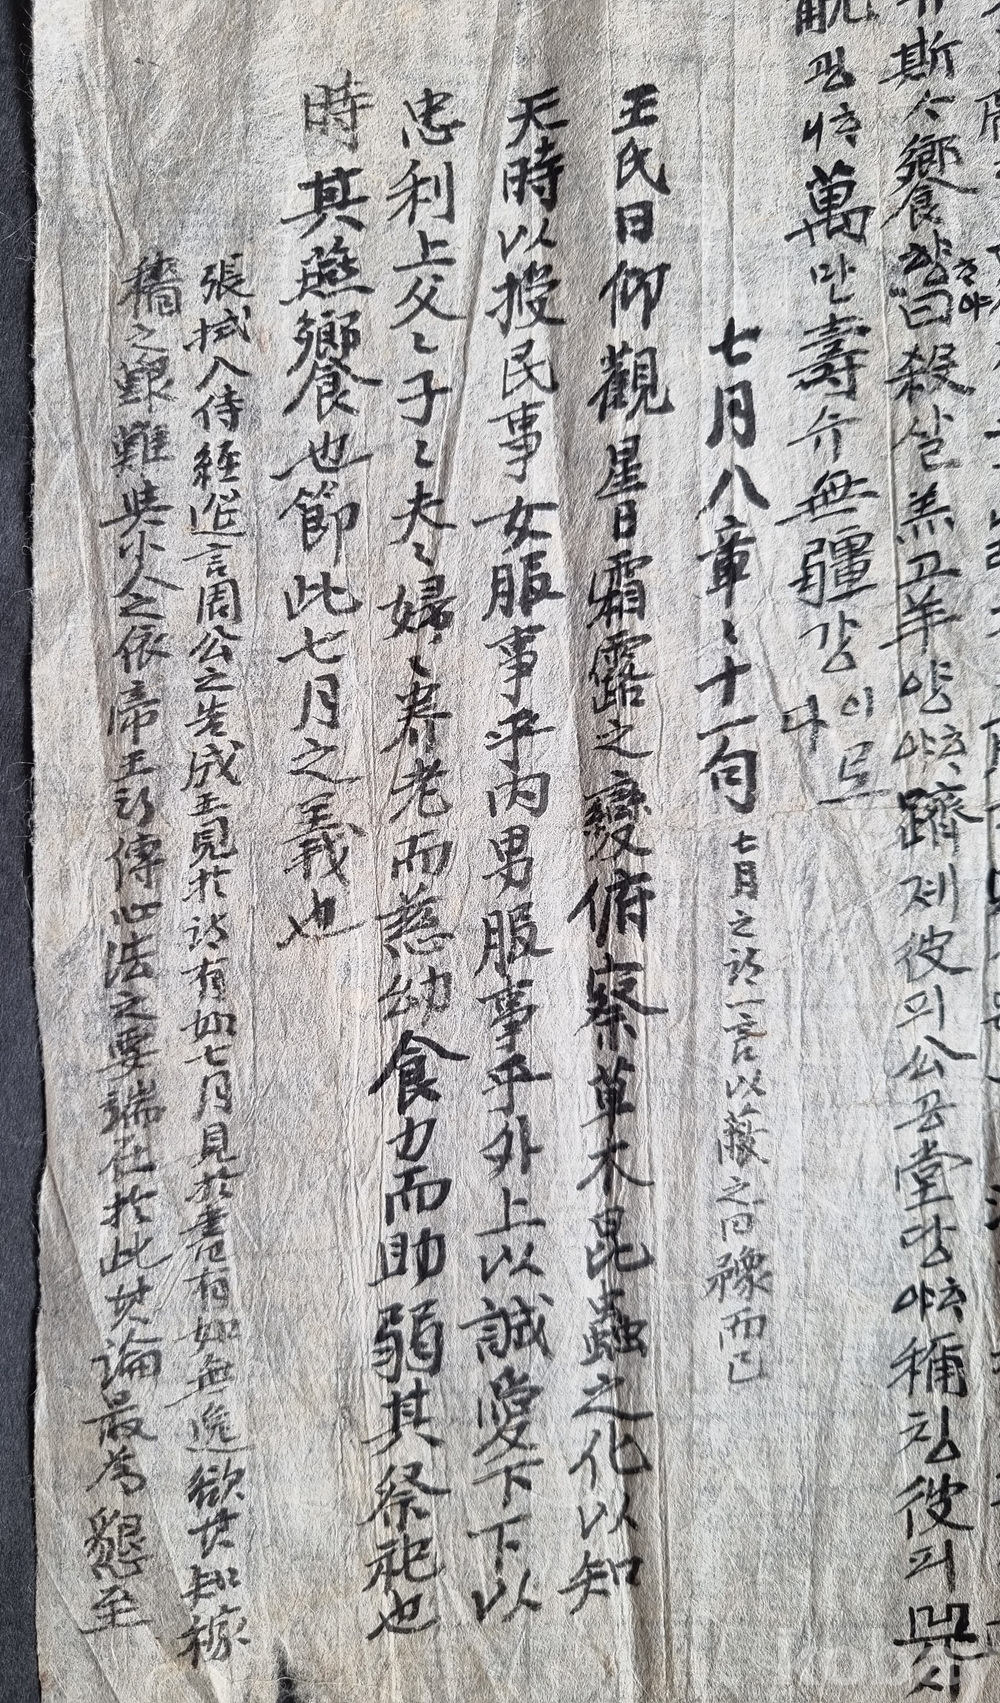 斯ᄉᆞ饗향ᄒᆞ야曰殺살羔고羊양ᄒᆞ야躋졔彼피公공堂당ᄒᆞ야稱칭彼피兕시
觥굉ᄒᆞ니萬만壽수无無疆강이로다
七月八章〻十一句 七月之詩一言以蔽之曰豫而已
王氏曰仰觀星日霜露之變俯察草木昆蟲之化以知
天時以授民事女服事乎内男服事乎外上以誠愛下下以
忠利上父〻子〻夫〻婦〻养老而慈幼食力而助弱其祭祀也
時其燕饗也節此七月之義也
張栻入侍經筵言周公之告成王見於詩有如七月見於書有如無逸欲其知稼
穡之艱難與小人之依帝王所傳心法之要端在於此其論最爲懇至